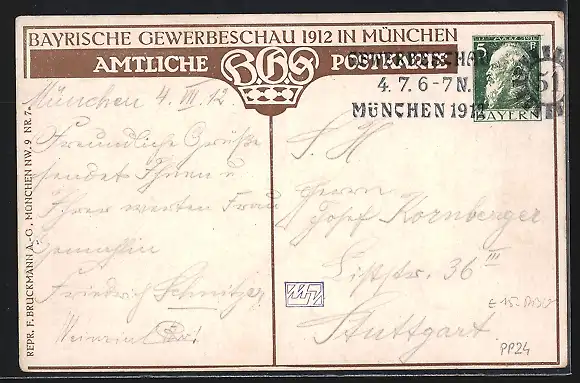 BAYRISCHE GEWERBESCHAU 1912 IN MÜNCHEN
AMTLICHE BGS POSTKARTE
GEWERBESCHAU
4. 7. 6-7 N.
MÜNCHEN 1912
51
5 Pf
BAYERN
München 4. VII. 12.
Freundliche Grüße
sendet Ihnen u
Ihrer werten Frau
Gemahlin
Friedrich Schmitzer
S. H
Herrn
Josef Kornberger
Liststr. 36 III
Stuttgart
PP24
REPR. F. BRUCKMANN A.-G., MÜNCHEN NW. 9 NR. 7